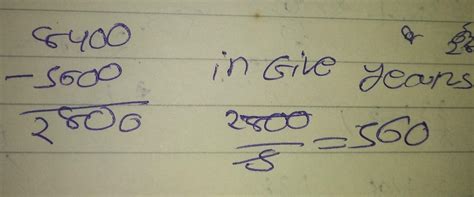 8400
-5600
2800
in Give years
2800
5
= 560